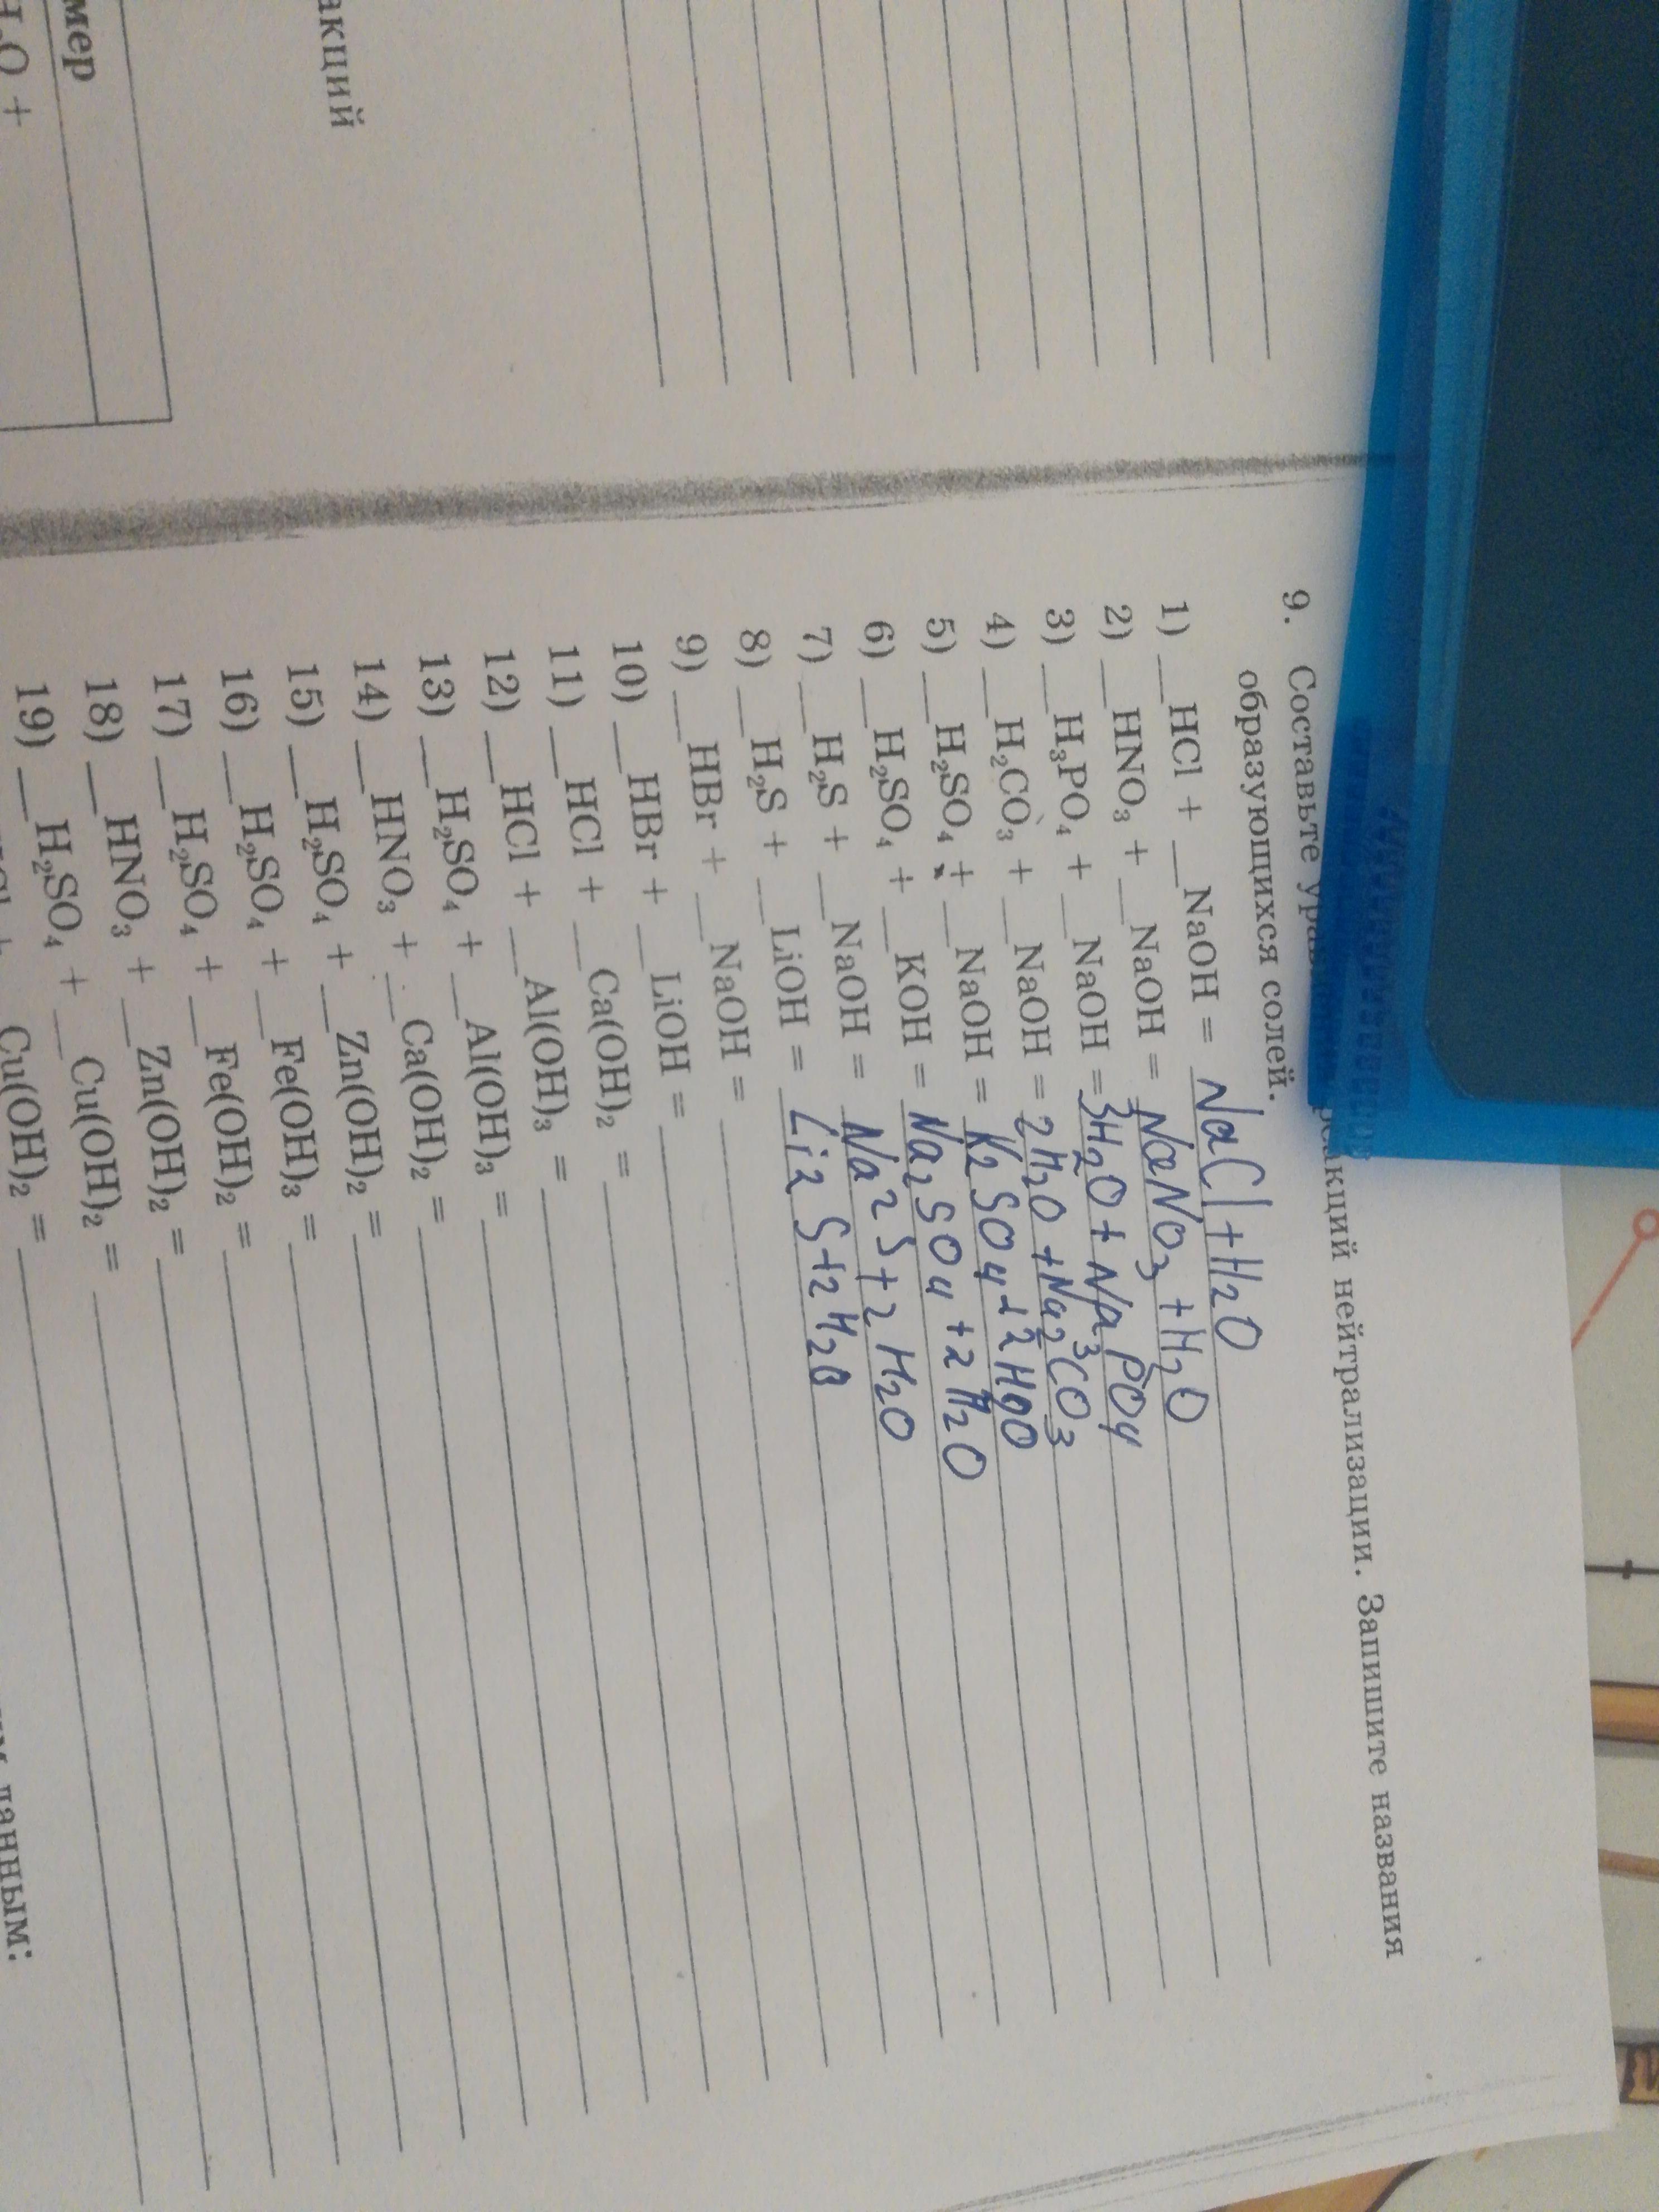 акций
мер
H₂O +
9. Составьте реакций нейтрализации. Запишите названия
образующихся солей.
1) __HCl + __NaOH = NaCl + H₂O
2) __HNO₃ + __NaOH = NaNO₃ + H₂O
3) __H₃PO₄ + __NaOH = 3H₂O + Na₃PO₄
4) __H₂CO₃ + __NaOH = 2H₂O + Na₂CO₃
5) __H₂SO₄ + __NaOH = K₂SO₄ + 2H₂O
6) __H₂SO₄ + __KOH = Na₂SO₄ + 2H₂O
7) __H₂S + __NaOH = Na₂S + 2H₂O
8) __H₂S + __LiOH = Li₂S + 2H₂O
9) __HBr + __NaOH =
10) __HBr + __LiOH =
11) __HCl + __Ca(OH)₂ =
12) __HCl + __Al(OH)₃ =
13) __H₂SO₄ + __Al(OH)₃ =
14) __HNO₃ + __Ca(OH)₂ =
15) __H₂SO₄ + __Zn(OH)₂ =
16) __H₂SO₄ + __Fe(OH)₃ =
17) __H₂SO₄ + __Fe(OH)₂ =
18) __HNO₃ + __Zn(OH)₂ =
19) __H₂SO₄ + __Cu(OH)₂ =
Cu(OH)₂ =
данным: